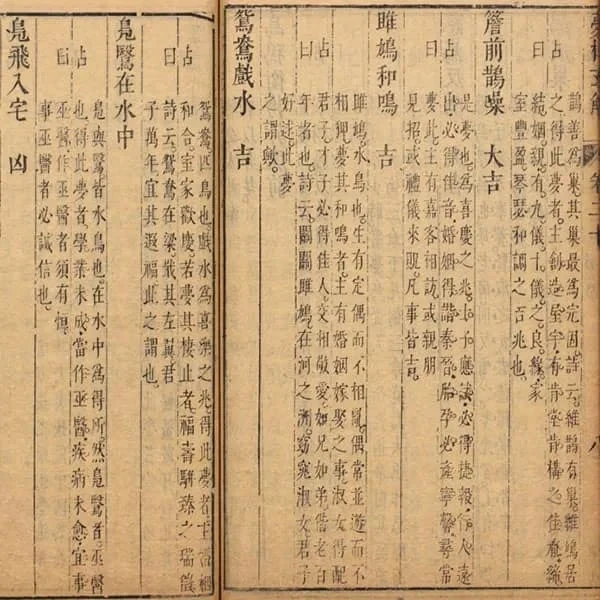 鵲善爲巢其巢最爲完固詩云維鵲有巢維鳩居
占 之得此夢者主創造屋宇有肯堂肯構之佳應締
曰 結姻親有九儀十儀之良緣家
室豐盈琴瑟和調之吉兆也
簷前鵲噪 大吉
是夢也爲喜慶之兆士子應試必得捷報行人遠
占 出必得佳音婚姻得諧秦晉胎孕必產寧馨尋常
曰 夢此主有嘉客相訪或親朋
見招或禮儀來貺凡事皆吉
雎鳩和鳴 吉
雎鳩水鳥也生有定偶而不相亂偶常並遊而不
相狎夢其和鳴者主有婚姻嫁娶之事淑女得配
占 君子才子必得佳人交相敬愛如兄如弟偕老百
曰 年者也詩云關關雎鳩在河之洲窈窕淑女君子
好逑此夢
之謂歟
鴛鴦戲水 吉
鴛鴦匹鳥也戲水爲喜樂之兆得此夢者主婚姻
占 和合室家歡慶若夢其棲止者福壽駢臻之瑞徵
曰 詩云鴛鴦在梁戢其左翼君
子萬年宜其遐福此之謂也
鳧鷖在水中
鳧與鷖皆水鳥也在水中爲得所然鳧鷖者巫醫
占 也得此夢者學業未成當作巫醫疾病未愈宜事
曰 巫醫作巫醫者須有恆
事巫醫者必誠信也
鳧飛入宅 凶